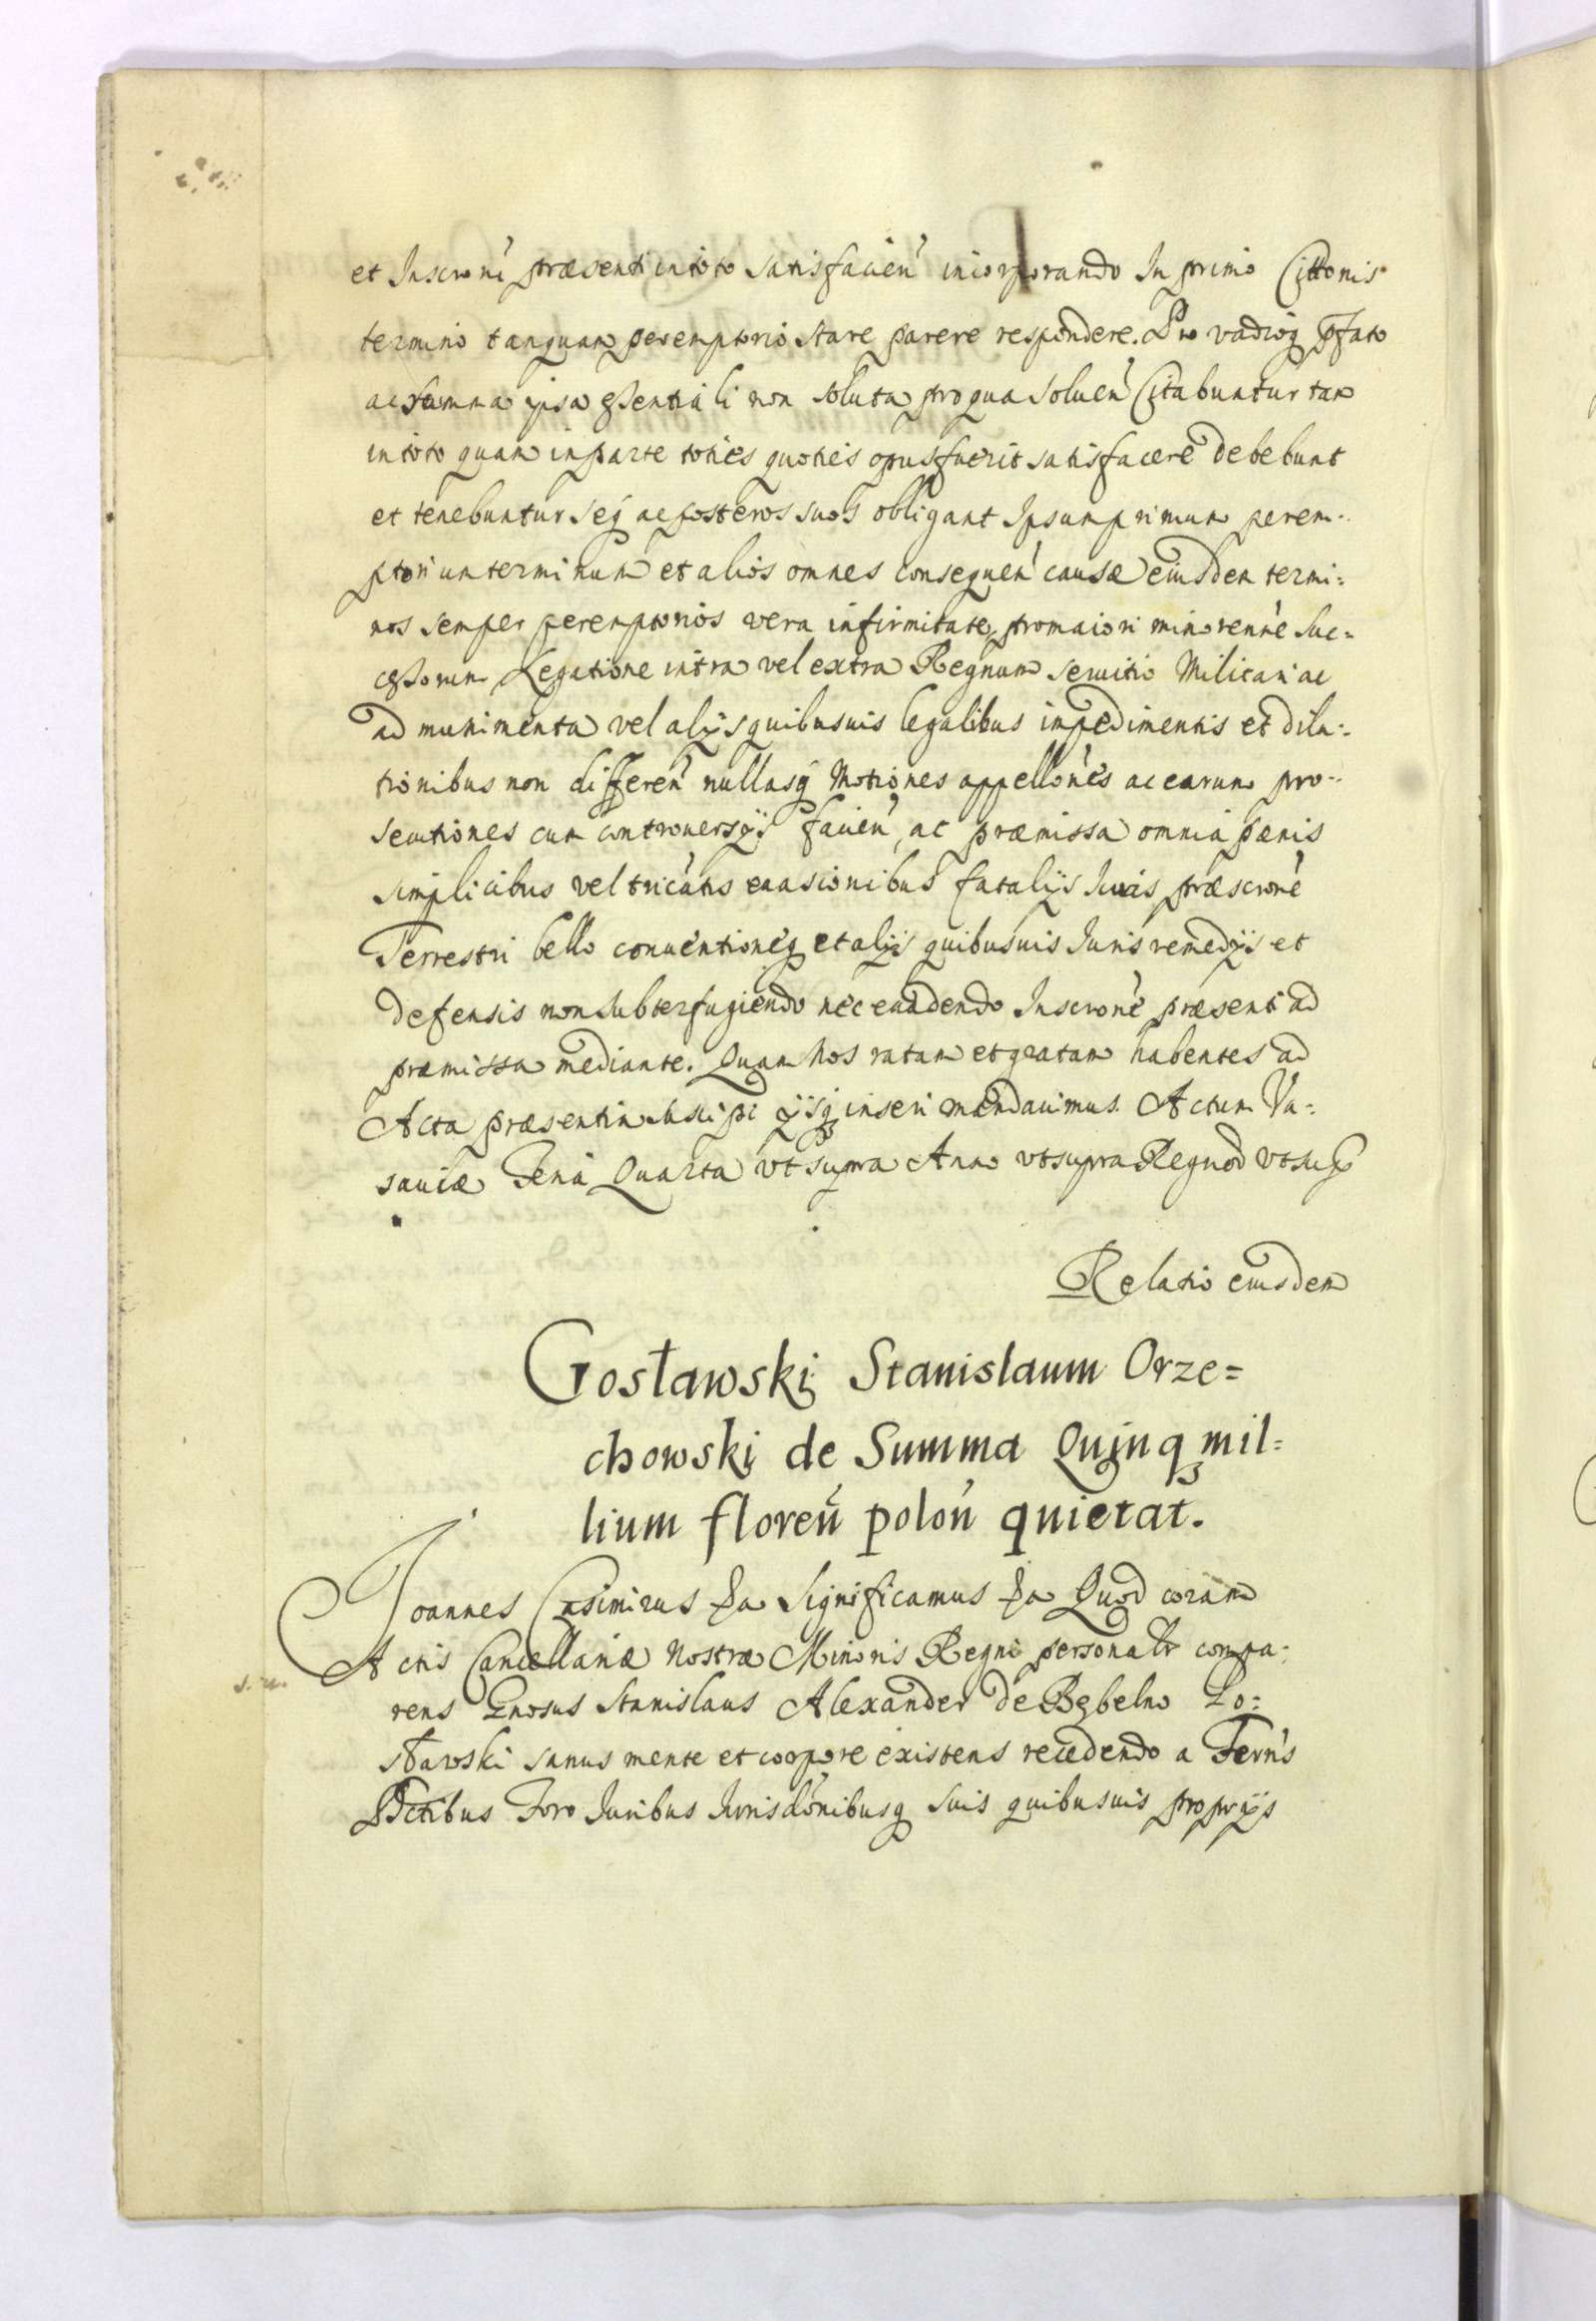 et Inscroni præsenti in toto satisfacien incorporando In primo Cittonis
termino tanquam peremptorio stare parere respondere. Pro vadioq pfato
ac summa ipsa essentiali non soluta pro qua soluen Citabuntur tam
in toto quam in parte toties quoties opus fuerit satisfacere debebunt
et tenebuntur seq ac posteros suos obligant Ipsum primum perem-
ptorium terminum et alios omnes consequen causæ eiusdem termi=
nos semper peremptorios vera infirmitate, pro maiori minorenne Suc=
cessorum Legatione intra vel extra Regnum seruitio Militari ac
ad munimenta vel alijs quibusuis legalibus impedimentis et dila=
tionibus non differen nullasq Motiones appellones ac earum pro-
secutiones cum controuersijs facien, ac præmissa omnia pænis
simplicibus vel tricatis euasionibus fatalijs Iuris præscrone
Terrestri bello conuentioneq et alijs quibusuis Iuris remedijs et
defensis non subterfugiendo nec euadendo Inscrone præsenti ad
præmissa mediante. Quam Nos ratam et gratam habentes ad
Acta præsentia suscipi ijsq inseri mandauimus. Actum Va=
sauiæ Feria Quarta vt supra Anno vt supra Regnod vt sup
Relatio eiusdem
Gosławski Stanislaum Orze=
chowski de Summa Quinq mil=
lium floreń poloń quietat.
Joannes Casimirus &a Significamus &a Quod coram
Actis Cancellariæ Nostræ Minoris Regni personalr compa=
rens Gnosus Stanislaus Alexander de Bębelno Go=
sławski sanus mente et corpore existens recedendo a Terris
Dctibus Foro Iuribus Iurisdonibusq suis quibusuis proprijs